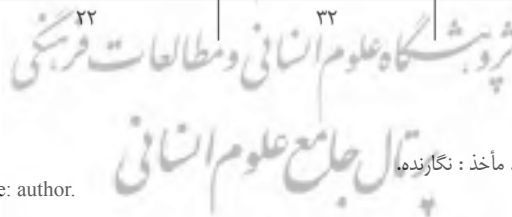 ۳۲ ۲۲
پژوهشگاه علوم انسانی و مطالعات فرهنگی
پرتال جامع علوم انسانی
. مأخذ : نگارنده.
e: author.